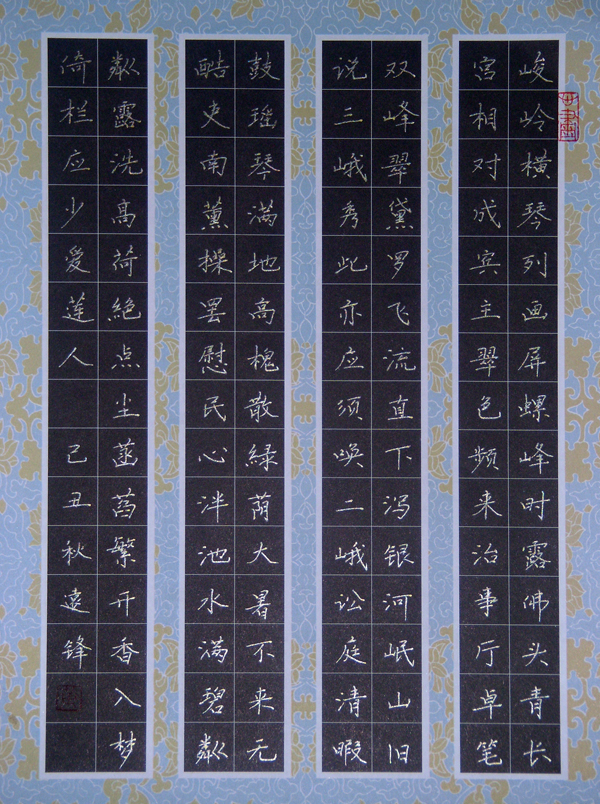 峻岭横琴列画屏螺峰时露佛头青长
宫相对成宾主翠色频来治事厅卓笔
双峰翠黛罗飞流直下泻银河岷山旧
说三峨秀此亦应须唤二峨讼庭清暇
鼓瑶琴满地高槐散緑荫大暑不来无
酷吏南薰操罢慰民心泮池水满碧粼
粼露洗高荷絶点尘菡萏繁开香入梦
倚栏应少爱莲人 己丑秋远锋